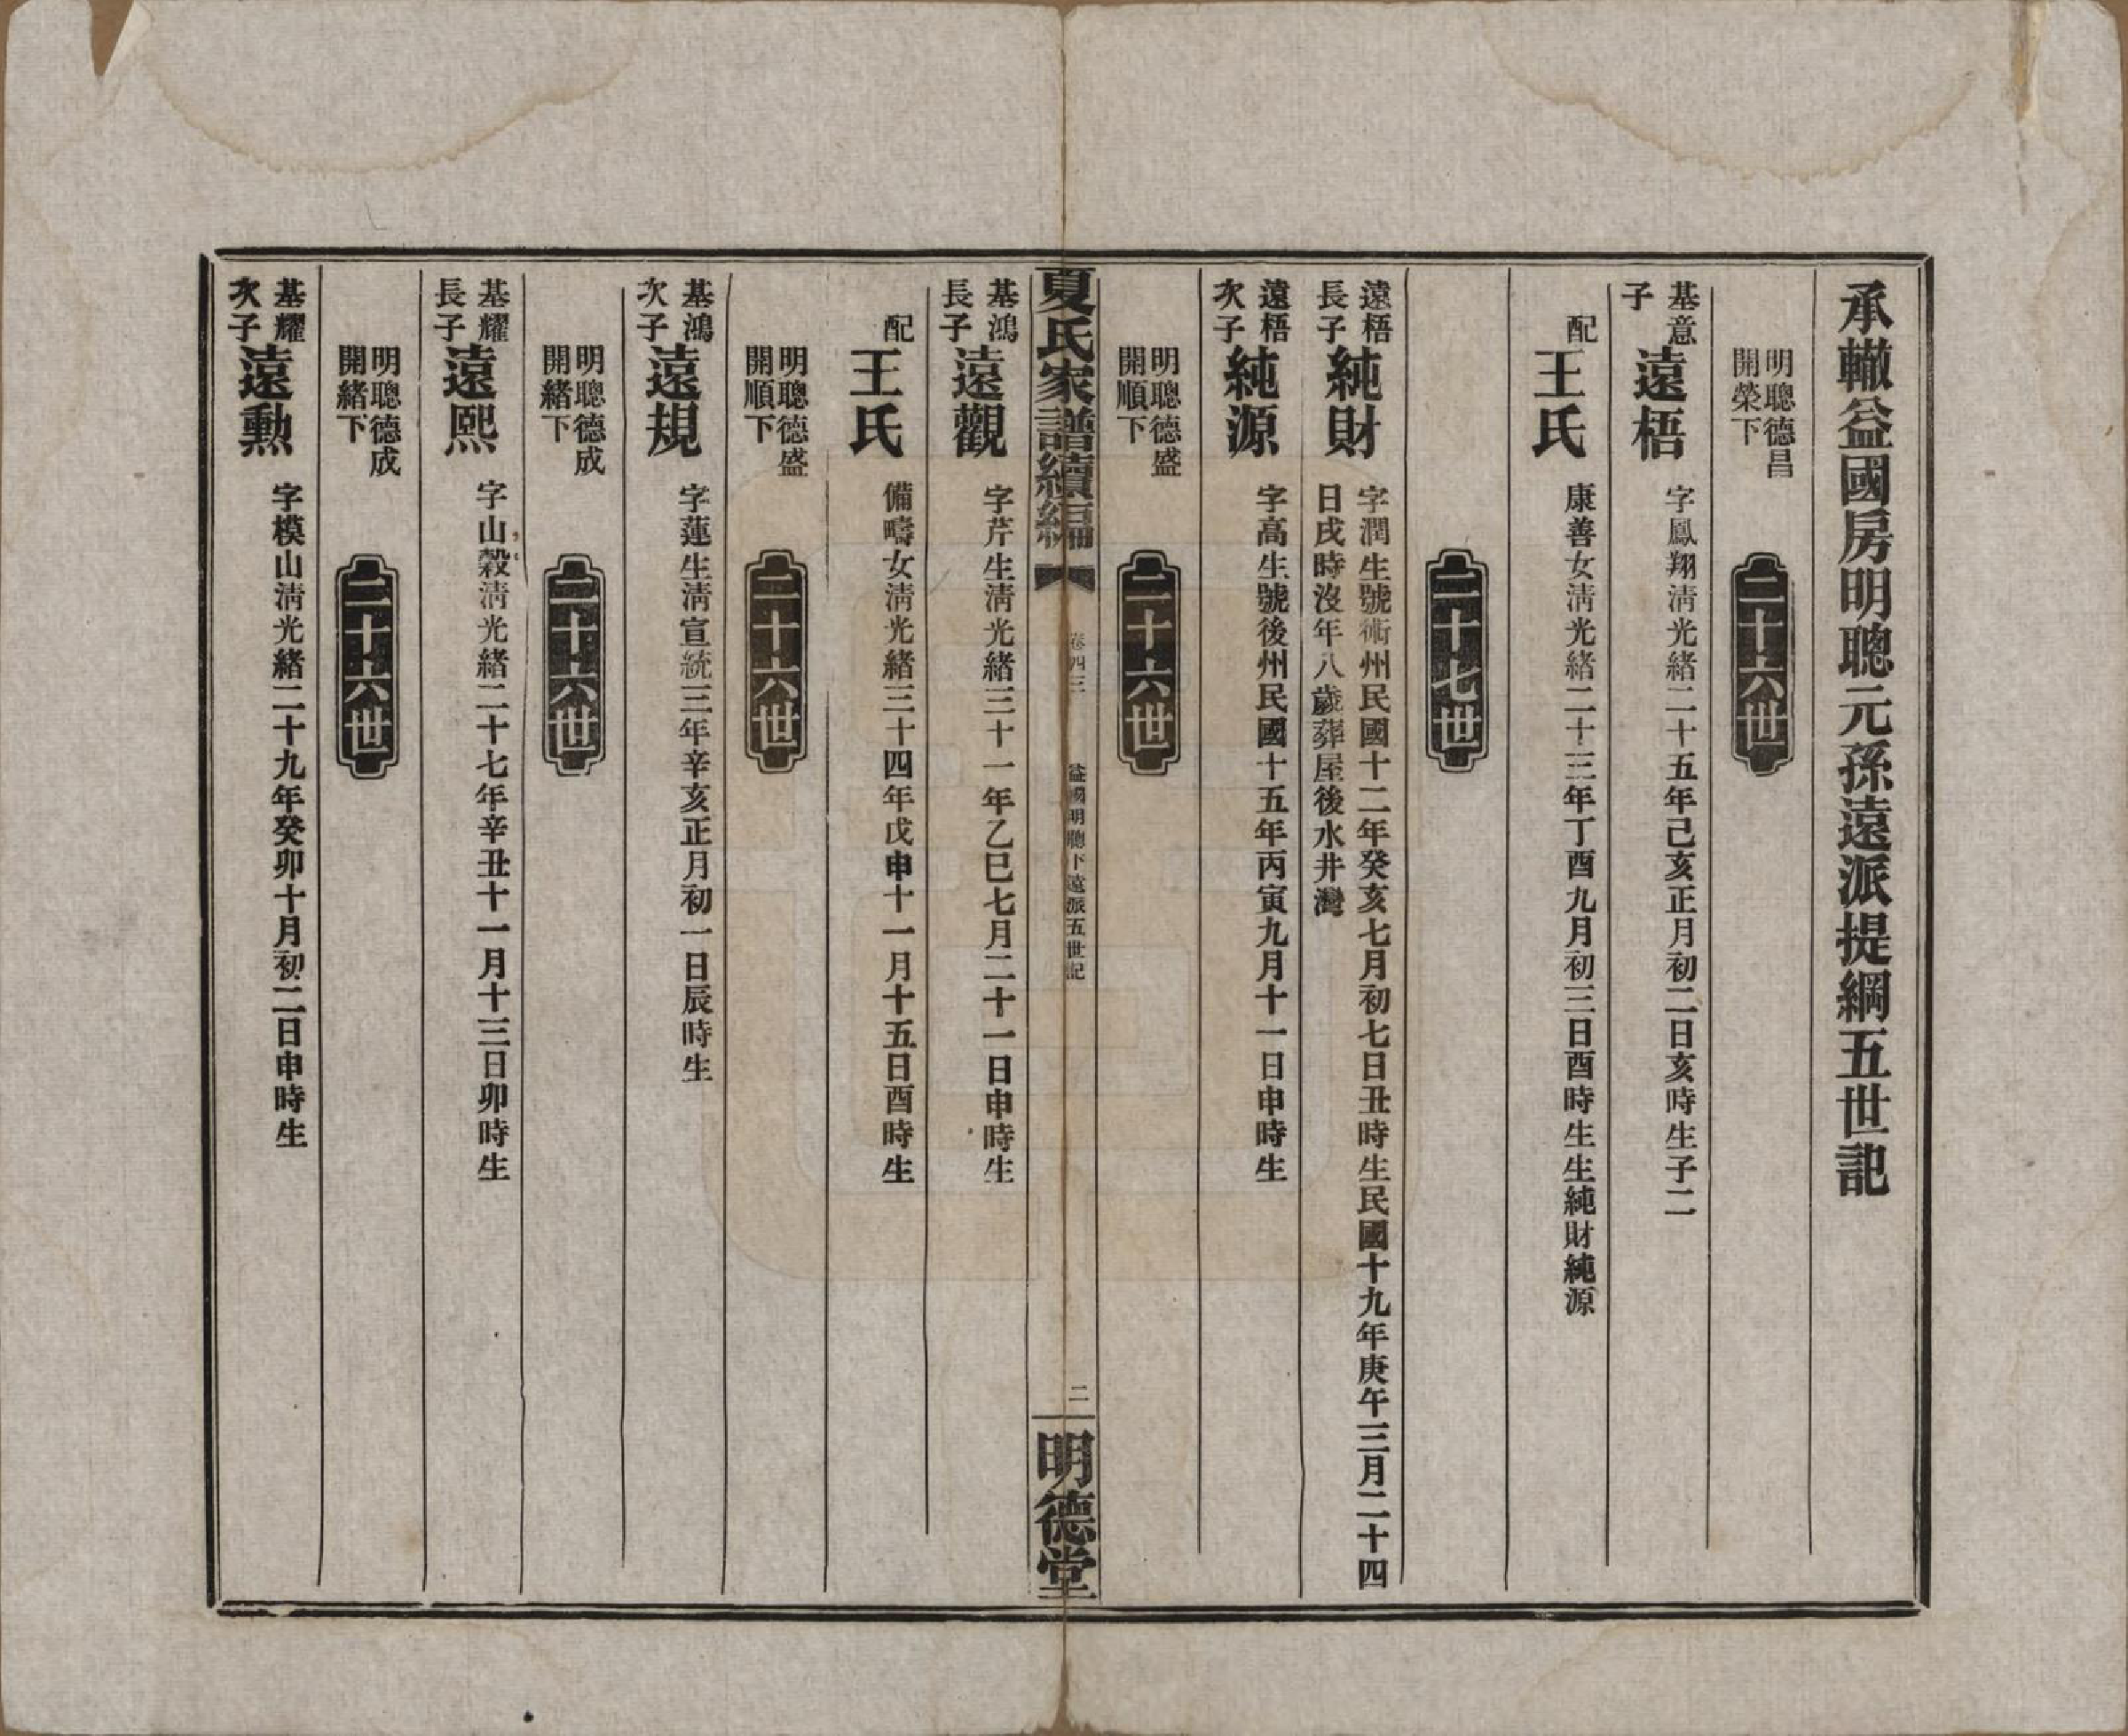 承轍益國房明聰元孫遠派提綱五世記
明聰德昌
開榮下
二十六世
基意
子
遠梧
字鳳翔淸光緒二十五年己亥正月初二日亥時生子二
配
王氏
康善女淸光緒二十三年丁酉九月初三日酉時生生純財純源
二十七世
遠梧
長子
純財
字潤生號術州民國十二年癸亥七月初七日丑時生民國十九年庚午三月二十四
日戌時沒年八歲葬屋後水井灣
遠梧
次子
純源
字高生號後州民國十五年丙寅九月十一日申時生
明聰德盛
開順下
二十六世
夏氏家譜續編
卷四三
益國明聰下遠派五世記
二
明德堂
基鴻
長子
遠觀
字芹生淸光緒三十一年乙巳七月二十一日申時生
配
王氏
備疇女淸光緒三十四年戊申十一月十五日酉時生
明聰德盛
開順下
二十六世
基鴻
次子
遠規
字蓮生淸宣統三年辛亥正月初一日辰時生
明聰德成
開緒下
二十六世
基耀
長子
遠熙
字山穀淸光緒二十七年辛丑十一月十三日卯時生
明聰德成
開緒下
二十六世
基耀
次子
遠勳
字模山淸光緒二十九年癸卯十月初二日申時生